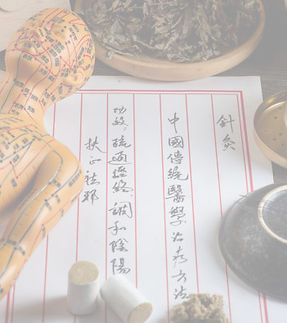 針灸
中國傳統醫學治療方法
功效：疏通經絡，調和陰陽
扶正祛邪